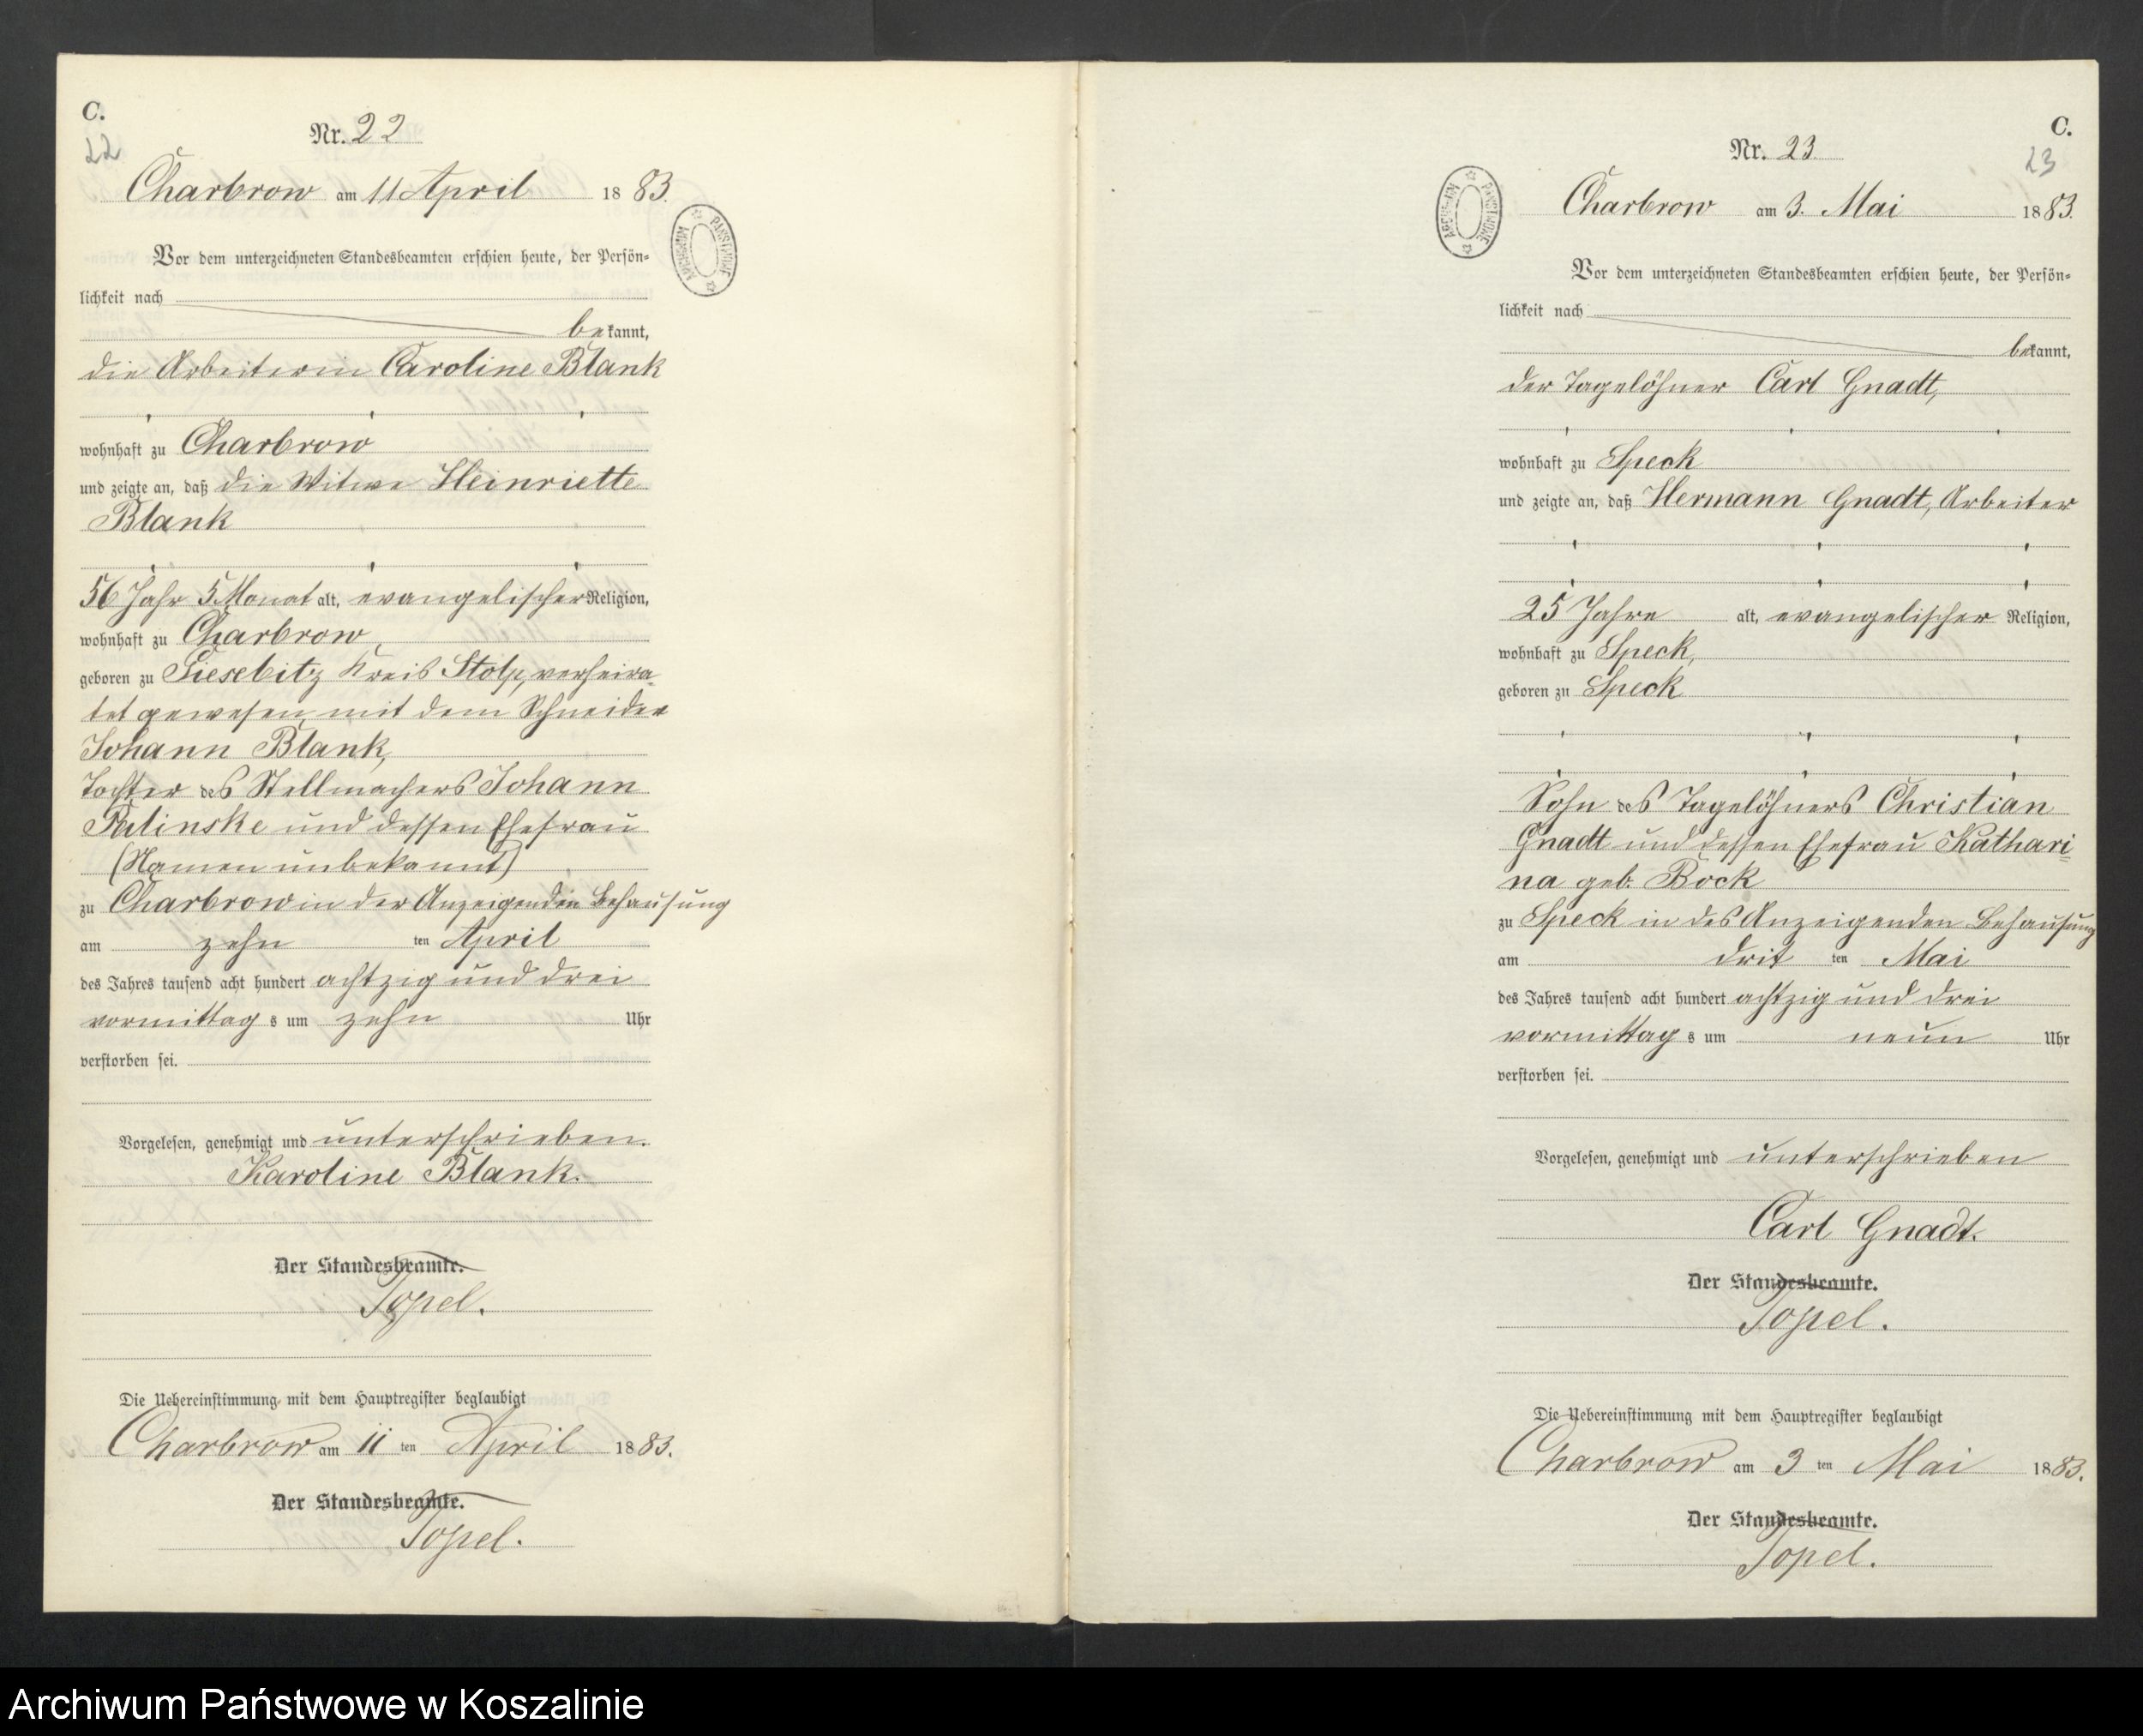 C.
22
Nr. 22
Charbrow am 11 April 1883.
ARCHIWUM PAŃSTWOWE
Vor dem unterzeichneten Standesbeamten erschien heute, der Persön-
lichkeit nach
bekannt,
die Arbeiterin Caroline Blank
wohnhaft zu Charbrow
und zeigte an, daß die Witwe Heinriette
Blank
56 Jahr 5 Monat alt, evangelischer Religion,
wohnhaft zu Charbrow
geboren zu Giesebitz Kreis Stolp, verheira-
tet gewesen mit dem Schneider
Johann Blank,
Tochter des Stellmachers Johann
und dessen Ehefrau
(Namen unbekannt)
zu Charbrow in der Anzeigenden Behausung
am zehn ten April
des Jahres tausend acht hundert achtzig und drei
vormittags um zehn Uhr
verstorben sei.
Vorgelesen, genehmigt und unterschrieben.
Karoline Blank.
Der Standesbeamte.
Topel.
Die Uebereinstimmung mit dem Hauptregister beglaubigt
Charbrow am 11 ten April 1883.
Der Standesbeamte.
Topel.
C.
23
Nr. 23
Charbrow am 3. Mai 1883.
ARCHIWUM PAŃSTWOWE
Vor dem unterzeichneten Standesbeamten erschien heute, der Persön-
lichkeit nach
bekannt,
der Tagelöhner Carl Gnadt,
wohnhaft zu Speck
und zeigte an, daß Hermann Gnadt, Arbeiter
25 Jahre alt, evangelischer Religion,
wohnhaft zu Speck,
geboren zu Speck
Sohn des Tagelöhners Christian
Gnadt und dessen Ehefrau Kathari-
na geb. Bock
zu Speck in des Anzeigenden Behausung
am drit ten Mai
des Jahres tausend acht hundert achtzig und drei
vormittags um neun Uhr
verstorben sei.
Vorgelesen, genehmigt und unterschrieben
Carl Gnadt.
Der Standesbeamte.
Topel.
Die Uebereinstimmung mit dem Hauptregister beglaubigt
Charbrow am 3 ten Mai 1883.
Der Standesbeamte.
Topel.
Archiwum Państwowe w Koszalinie